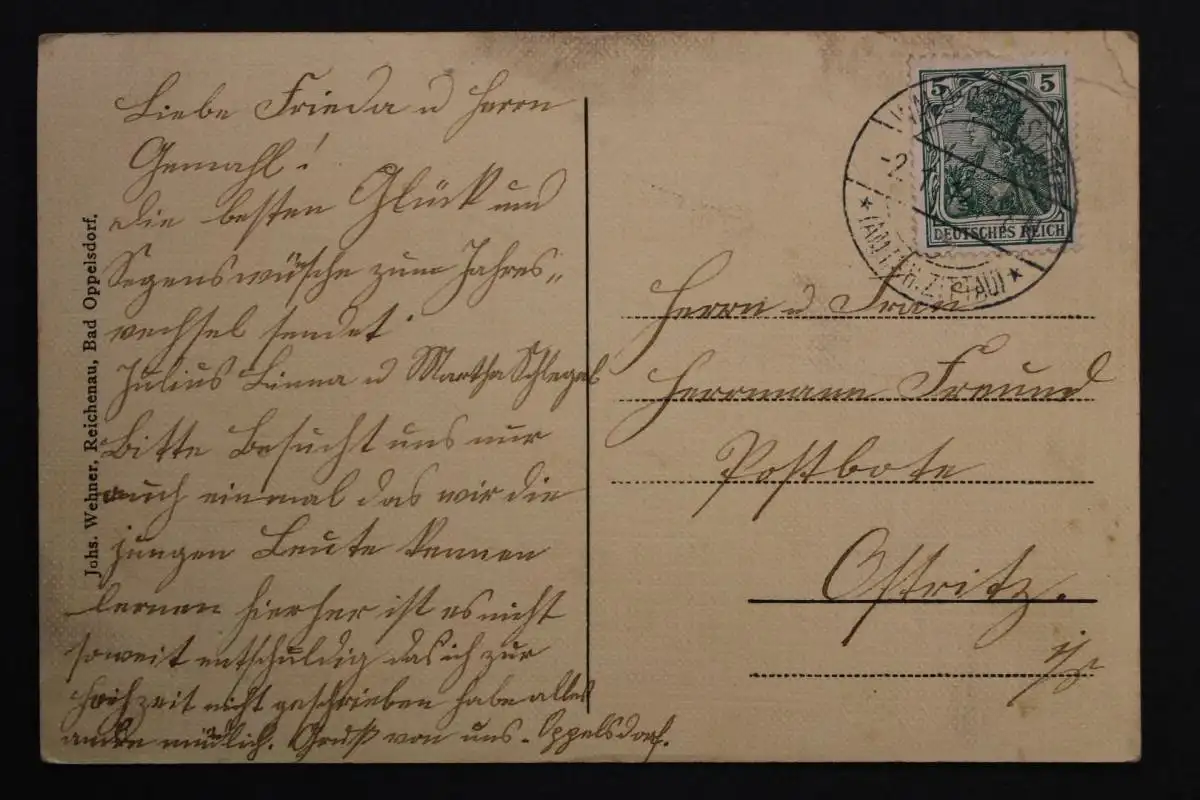 Liebe Frieda u Herrn
Gemahl!
die besten Glück und
Segenswünsche zum Jahres„
wechsel sendet
Julius Linna u Martha Schlegel
Bitte besucht uns nur
auch einmal das wir die
jungen Leute kennen
lernen hierher ist es nicht
so weit entschuldig das ich zur
Hochzeit nicht geschrieben habe alles
mündlich. Gruß von uns - Oppelsdorf.
Johs. Wehner, Reichenau, Bad Oppelsdorf.
5 5
DEUTSCHES REICH
(AMTSH. ZITTAU)
Herrn u Frau
Herrmann Freund
Postbote
Ostritz.